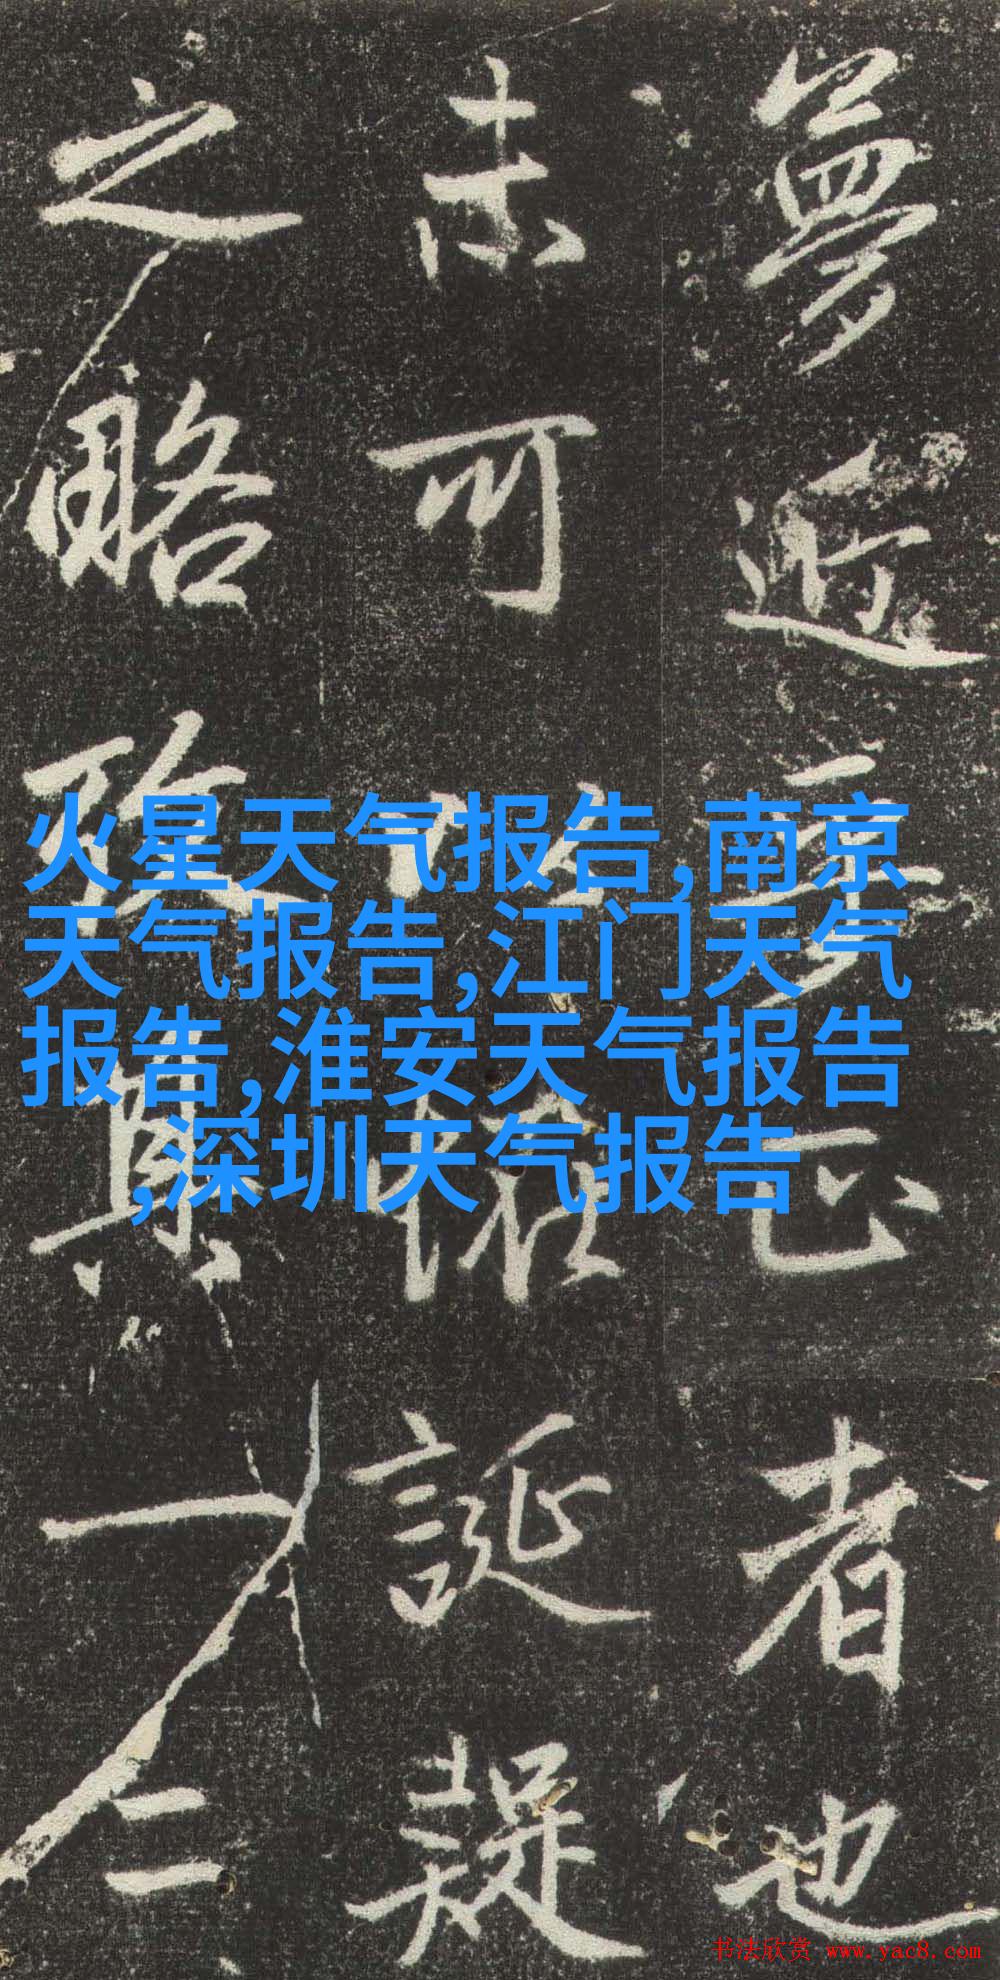 夢近夢正者也
未可以怪誕疑
之略致其一二
火星天气报告,南京
天气报告,江门天气
报告,淮安天气报告
,深圳天气报告
书法欣赏 www.yac8.com